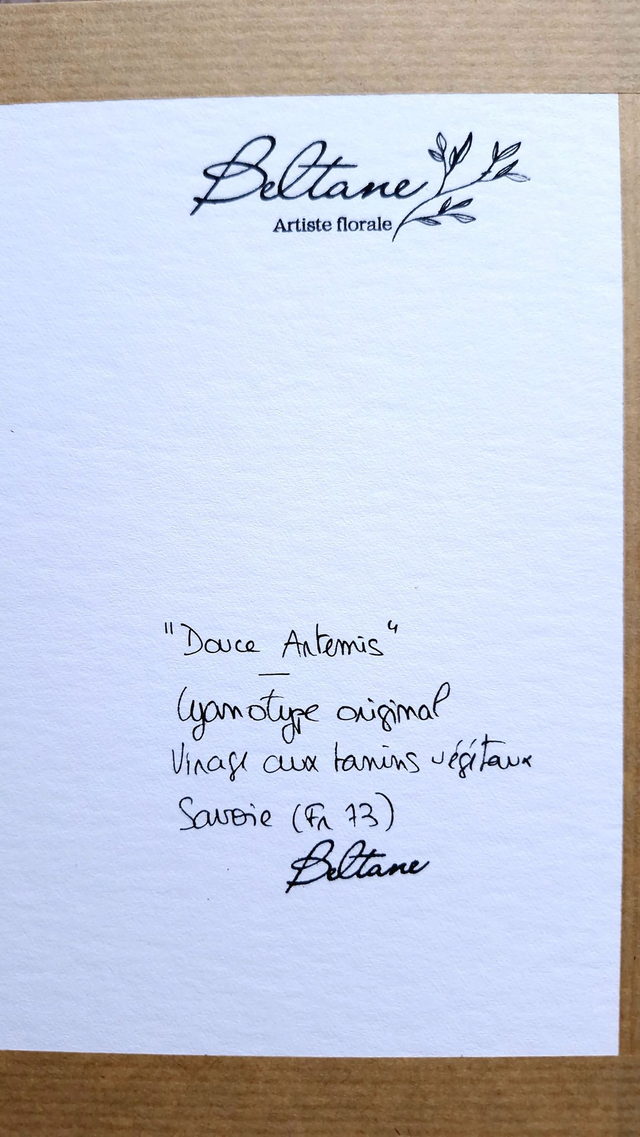 Beltane
Artiste florale
"Douce Artemis"
Cyanotype original
Virage aux tanins végétaux
Savoie (Fr 73)
Beltane